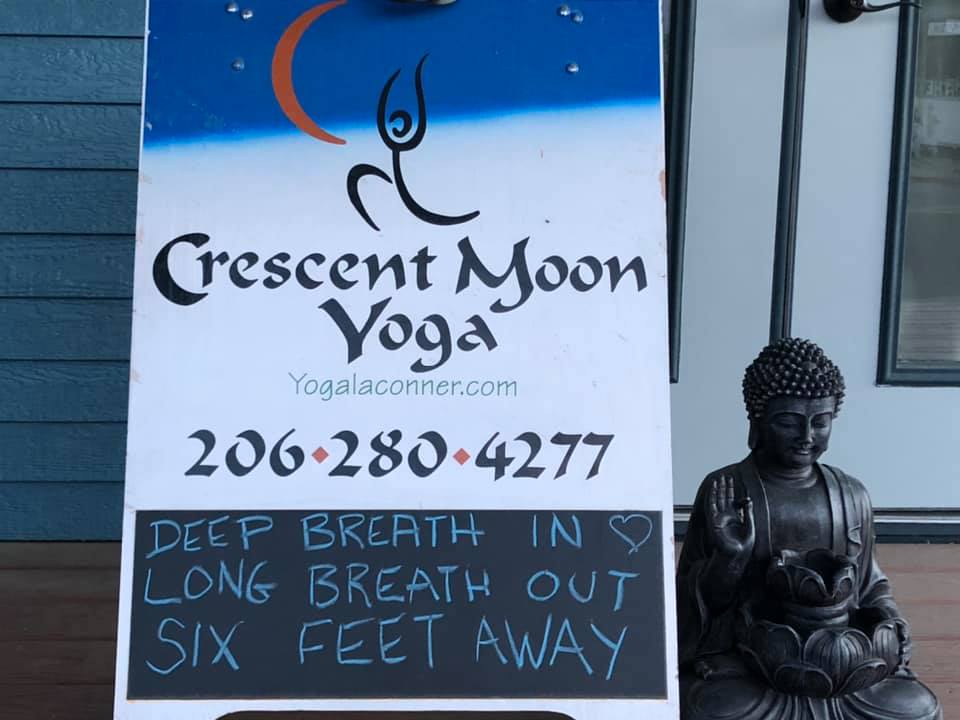 Crescent Moon
Yoga
Yogalaconner.com
206•280•4277
DEEP BREATH IN ♡
LONG BREATH OUT
SIX FEET AWAY